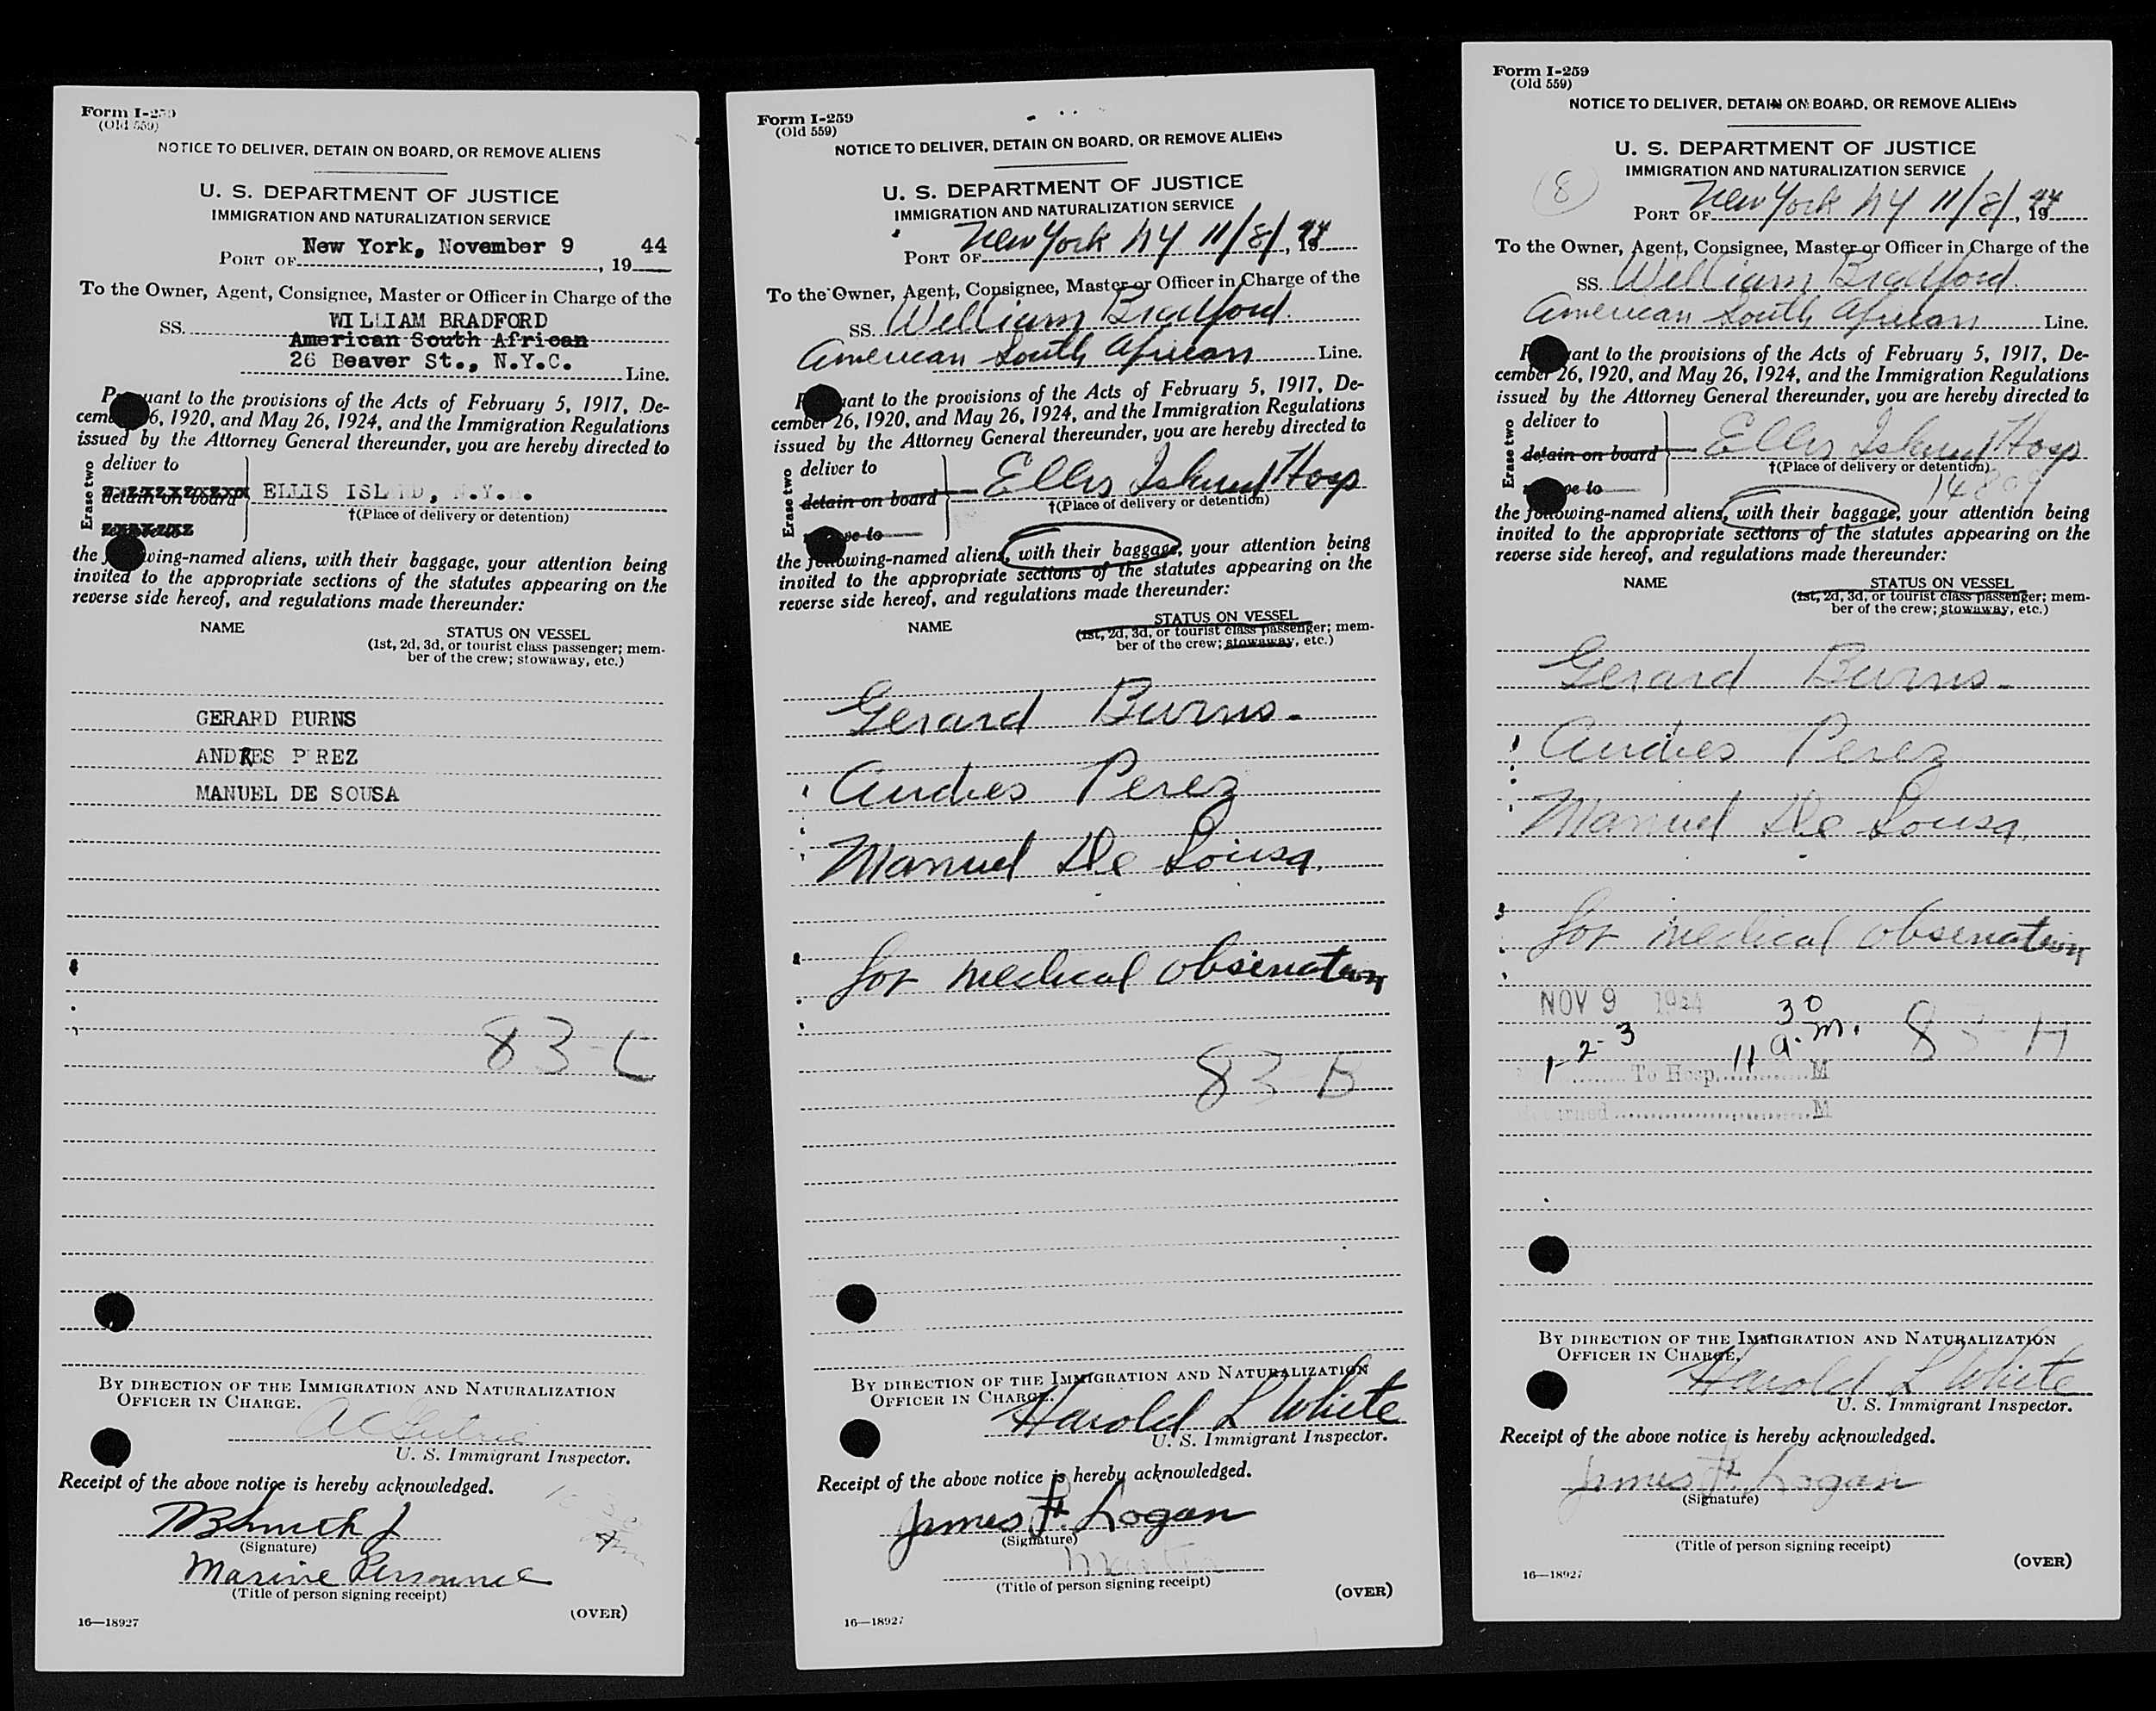 Form I-259
(Old 559)
NOTICE TO DELIVER, DETAIN ON BOARD, OR REMOVE ALIENS
U. S. DEPARTMENT OF JUSTICE
IMMIGRATION AND NATURALIZATION SERVICE
PORT OF New York, November 9, 1944
To the Owner, Agent, Consignee, Master or Officer in Charge of the
SS. WILLIAM BRADFORD
American South African
26 Beaver St., N.Y.C. Line.
Pursuant to the provisions of the Acts of February 5, 1917, De-
cember 26, 1920, and May 26, 1924, and the Immigration Regulations
issued by the Attorney General thereunder, you are hereby directed to
Erase two
deliver to
detain on board
ELLIS ISLAND, N.Y.
†(Place of delivery or detention)
the following-named aliens, with their baggage, your attention being
invited to the appropriate sections of the statutes appearing on the
reverse side hereof, and regulations made thereunder:
NAME STATUS ON VESSEL
(1st, 2d, 3d, or tourist class passenger; mem-
ber of the crew; stowaway, etc.)
GERARD BURNS
ANDRES PEREZ
MANUEL DE SOUSA
83-C
BY DIRECTION OF THE IMMIGRATION AND NATURALIZATION
OFFICER IN CHARGE.
U. S. Immigrant Inspector.
Receipt of the above notice is hereby acknowledged.
(Signature)
Marine Personnel
(Title of person signing receipt)
(OVER)
16—18927
Form I-259
(Old 559)
NOTICE TO DELIVER, DETAIN ON BOARD, OR REMOVE ALIENS
U. S. DEPARTMENT OF JUSTICE
IMMIGRATION AND NATURALIZATION SERVICE
PORT OF New York NY 11/8/, 1944
To the Owner, Agent, Consignee, Master or Officer in Charge of the
SS. William Bradford.
American South African Line.
Pursuant to the provisions of the Acts of February 5, 1917, De-
cember 26, 1920, and May 26, 1924, and the Immigration Regulations
issued by the Attorney General thereunder, you are hereby directed to
Erase two
deliver to
detain on board
remove to
Ellis Island Hosp
†(Place of delivery or detention)
the following-named aliens, with their baggage, your attention being
invited to the appropriate sections of the statutes appearing on the
reverse side hereof, and regulations made thereunder:
NAME STATUS ON VESSEL
(1st, 2d, 3d, or tourist class passenger; mem-
ber of the crew; stowaway, etc.)
Gerard Burns.
Andres Perez
Manuel De Sousa.
for medical observation
83-B
BY DIRECTION OF THE IMMIGRATION AND NATURALIZATION
OFFICER IN CHARGE.
Harold L White
U. S. Immigrant Inspector.
Receipt of the above notice is hereby acknowledged.
James F. Logan
(Signature)
(Title of person signing receipt)
(OVER)
16—18927
Form I-259
(Old 559)
NOTICE TO DELIVER, DETAIN ON BOARD, OR REMOVE ALIENS
U. S. DEPARTMENT OF JUSTICE
IMMIGRATION AND NATURALIZATION SERVICE
8
PORT OF New York NY 11/8/, 1944
To the Owner, Agent, Consignee, Master or Officer in Charge of the
SS. William Bradford.
American South African Line.
Pursuant to the provisions of the Acts of February 5, 1917, De-
cember 26, 1920, and May 26, 1924, and the Immigration Regulations
issued by the Attorney General thereunder, you are hereby directed to
Erase two
deliver to
detain on board
remove to
Ellis Island Hosp
†(Place of delivery or detention)
the following-named aliens, with their baggage, your attention being
invited to the appropriate sections of the statutes appearing on the
reverse side hereof, and regulations made thereunder:
NAME STATUS ON VESSEL
(1st, 2d, 3d, or tourist class passenger; mem-
ber of the crew; stowaway, etc.)
Gerard Burns.
Andres Perez
Manuel De Sousa.
for medical observation
NOV 9 1944
1-2-3 11 30 a.m.
To Hosp. M
Returned M
BY DIRECTION OF THE IMMIGRATION AND NATURALIZATION
OFFICER IN CHARGE.
Harold L White
U. S. Immigrant Inspector.
Receipt of the above notice is hereby acknowledged.
James F. Logan
(Signature)
(Title of person signing receipt)
(OVER)
16—18927